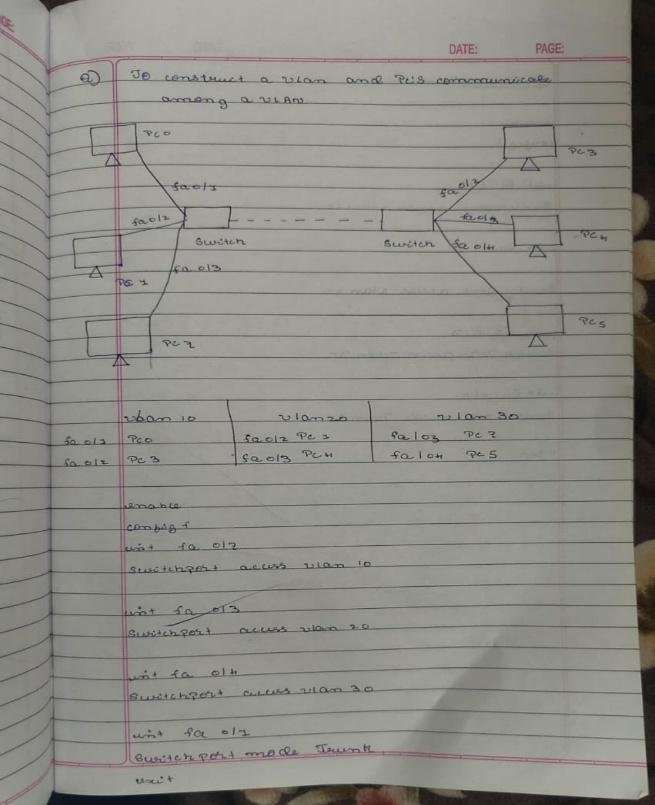 DATE: PAGE:
Q) To construct a vlan and Pc's communicate
among a VLAN
Pc0
Pc3
fa 0/1
fa 0/2
fa 0/2
fa 0/3
Pc4
Switch
Switch
fa 0/4
fa 0/3
Pc 1
Pc5
Pc 2
vlan 10 vlan 20 vlan 30
fa 0/1 Pc0 fa 0/2 Pc 1 fa/03 Pc 2
fa 0/2 Pc 3 fa 0/3 Pc4 fa/04 Pc 5
enable
config t
int fa 0/2
Switchport access vlan 10
int fa 0/3
Switchport access vlan 20
int fa 0/4
Switchport access vlan 30
int fa 0/1
Switchport mode Trunk
exit